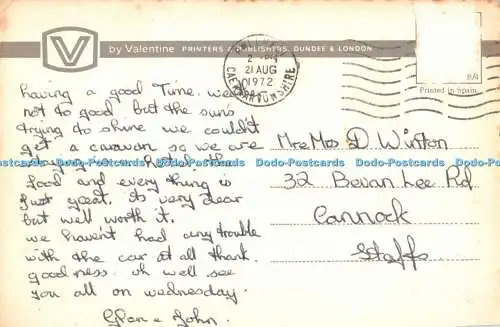 V
by Valentine PRINTERS & PUBLISHERS, DUNDEE & LONDON
21 AUG
1972
CAERNARVONSHIRE
8/4
Printed in Spain.
having a good Time. weather
not to good but the suns
trying to shine we couldn't
get a caravan so we are
staying in a hotel. the
food and every thing is
just great. its very dear
but well worth it.
we haven't had any trouble
with the car at all thank
goodness. oh well see
you all on wednesday.
Glan & John.
Mr & Mrs D Winton
32 Bevan Lee Rd
Cannock
Staffs.
Dodo-Postcards Dodo-Postcards Dodo-Postcards Dodo-Postcards Dodo-Postcards